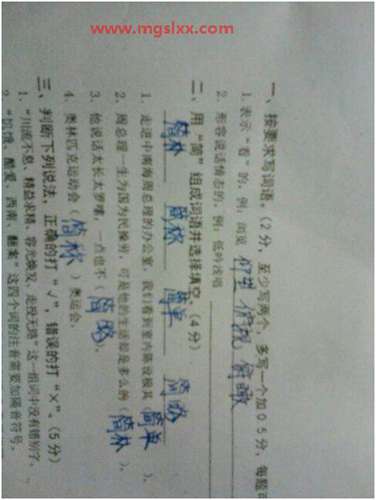 www.mgslxx.com
一、按要求写词语。(2分，至少写两个，多写一个加0 5分，每题
1. 表示“看”的，例：闻见 仰望 俯视 俯瞰
2. 形容说话情态的，例：低吟浅唱
二、用“简”组成词语并选择填空。(4分)
简朴 简称 简单 简略
1. 走进中南海周总理的办公室，我们看到室内陈设极其(简单)。
2. 周总理一生为国为民操劳，可是他的生活却是多么的(简朴)。
3. 他说话太长太罗嗦，一点也不(简略)。
4. 奥林匹克运动会(简称)奥运会。
三、判断下列说法，正确的打“√”，错误的打“×”。(5分)
1. “川流不息、精益求精、容光焕发、走投无路”这一组词中没有错别字。
2. “饥饿、酷爱、西南、翻案”这四个词的注音需要加隔音符号。